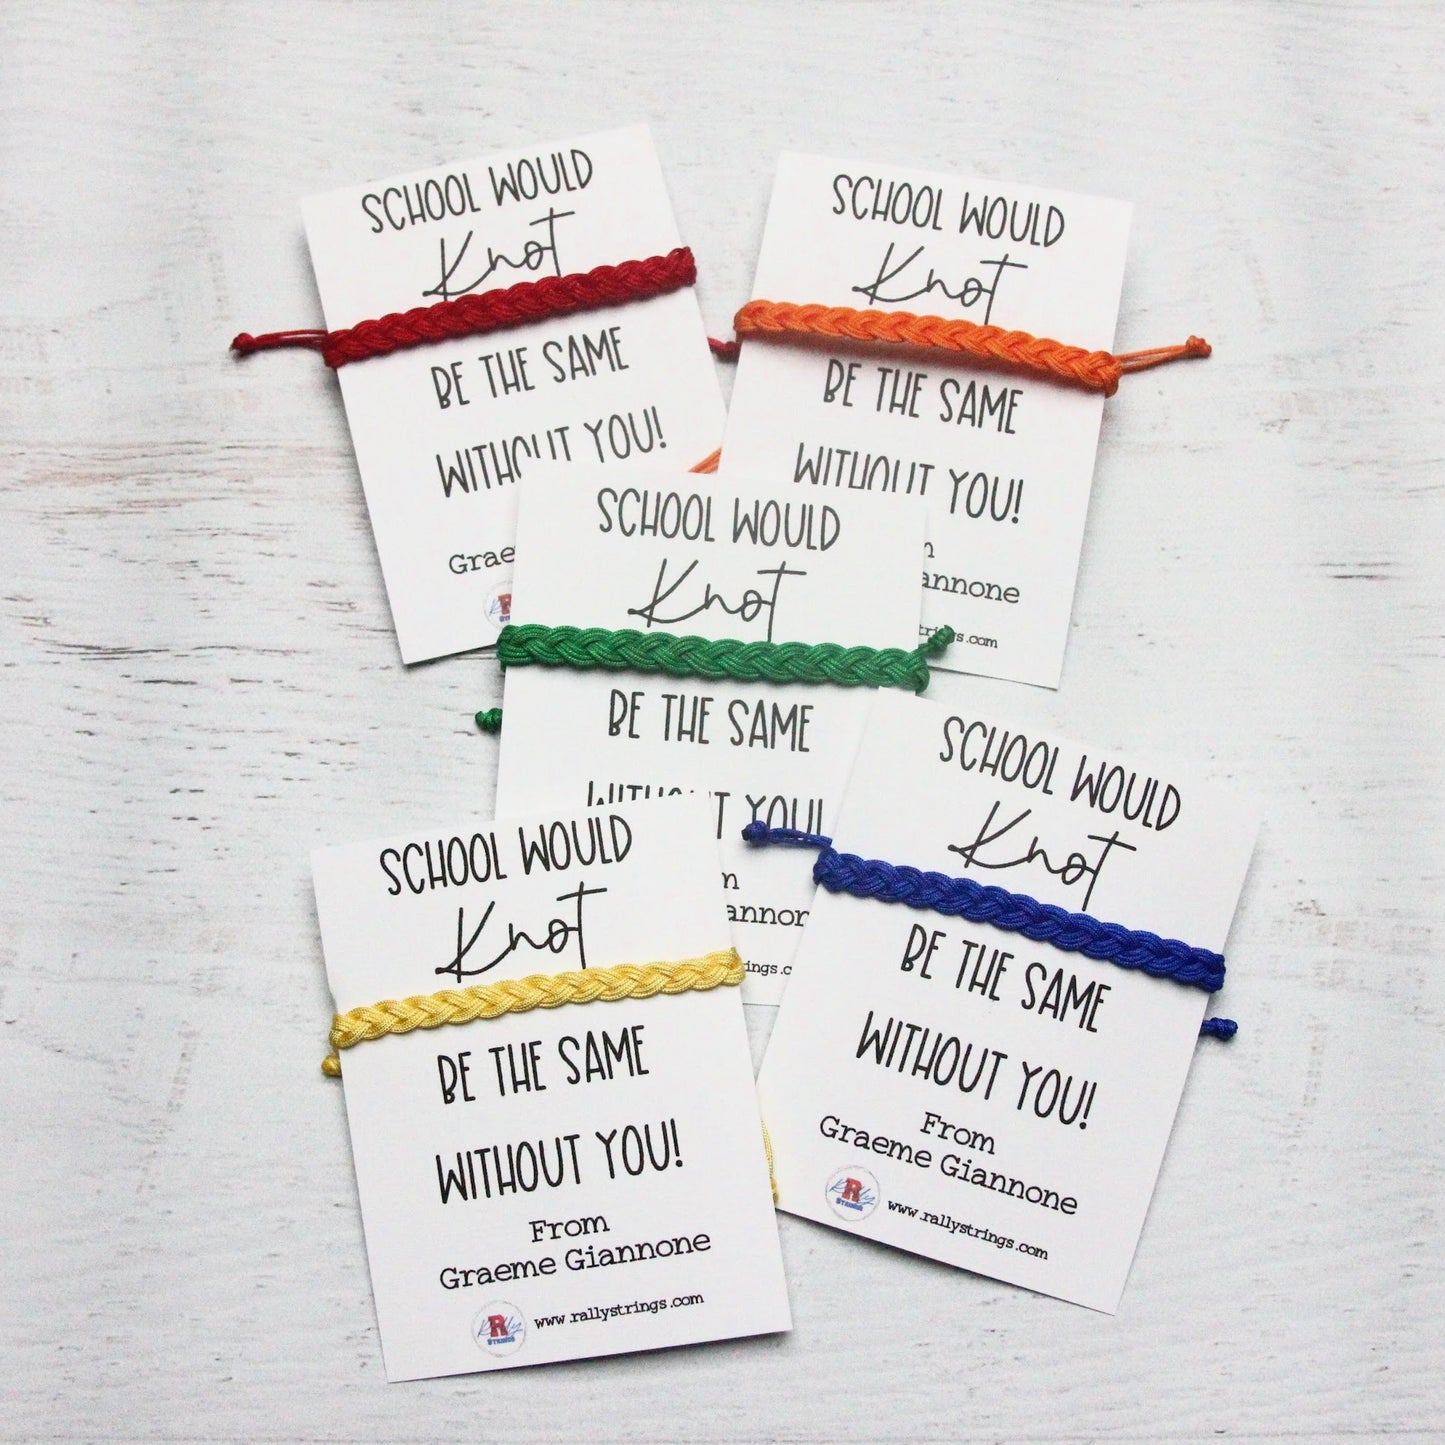 SCHOOL WOULD
Knot
BE THE SAME
WITHOUT YOU!
Grae
R
SCHOOL WOULD
Knot
BE THE SAME
WITHOUT YOU!
annone
ngs.com
SCHOOL WOULD
Knot
BE THE SAME
WITHOUT YOU!
m
annon
ings.c
SCHOOL WOULD
Knot
BE THE SAME
WITHOUT YOU!
From
Graeme Giannone
Rally
STRINGS
www.rallystrings.com
SCHOOL WOULD
Knot
BE THE SAME
WITHOUT YOU!
From
Graeme Giannone
Rally
STRINGS
www.rallystrings.com